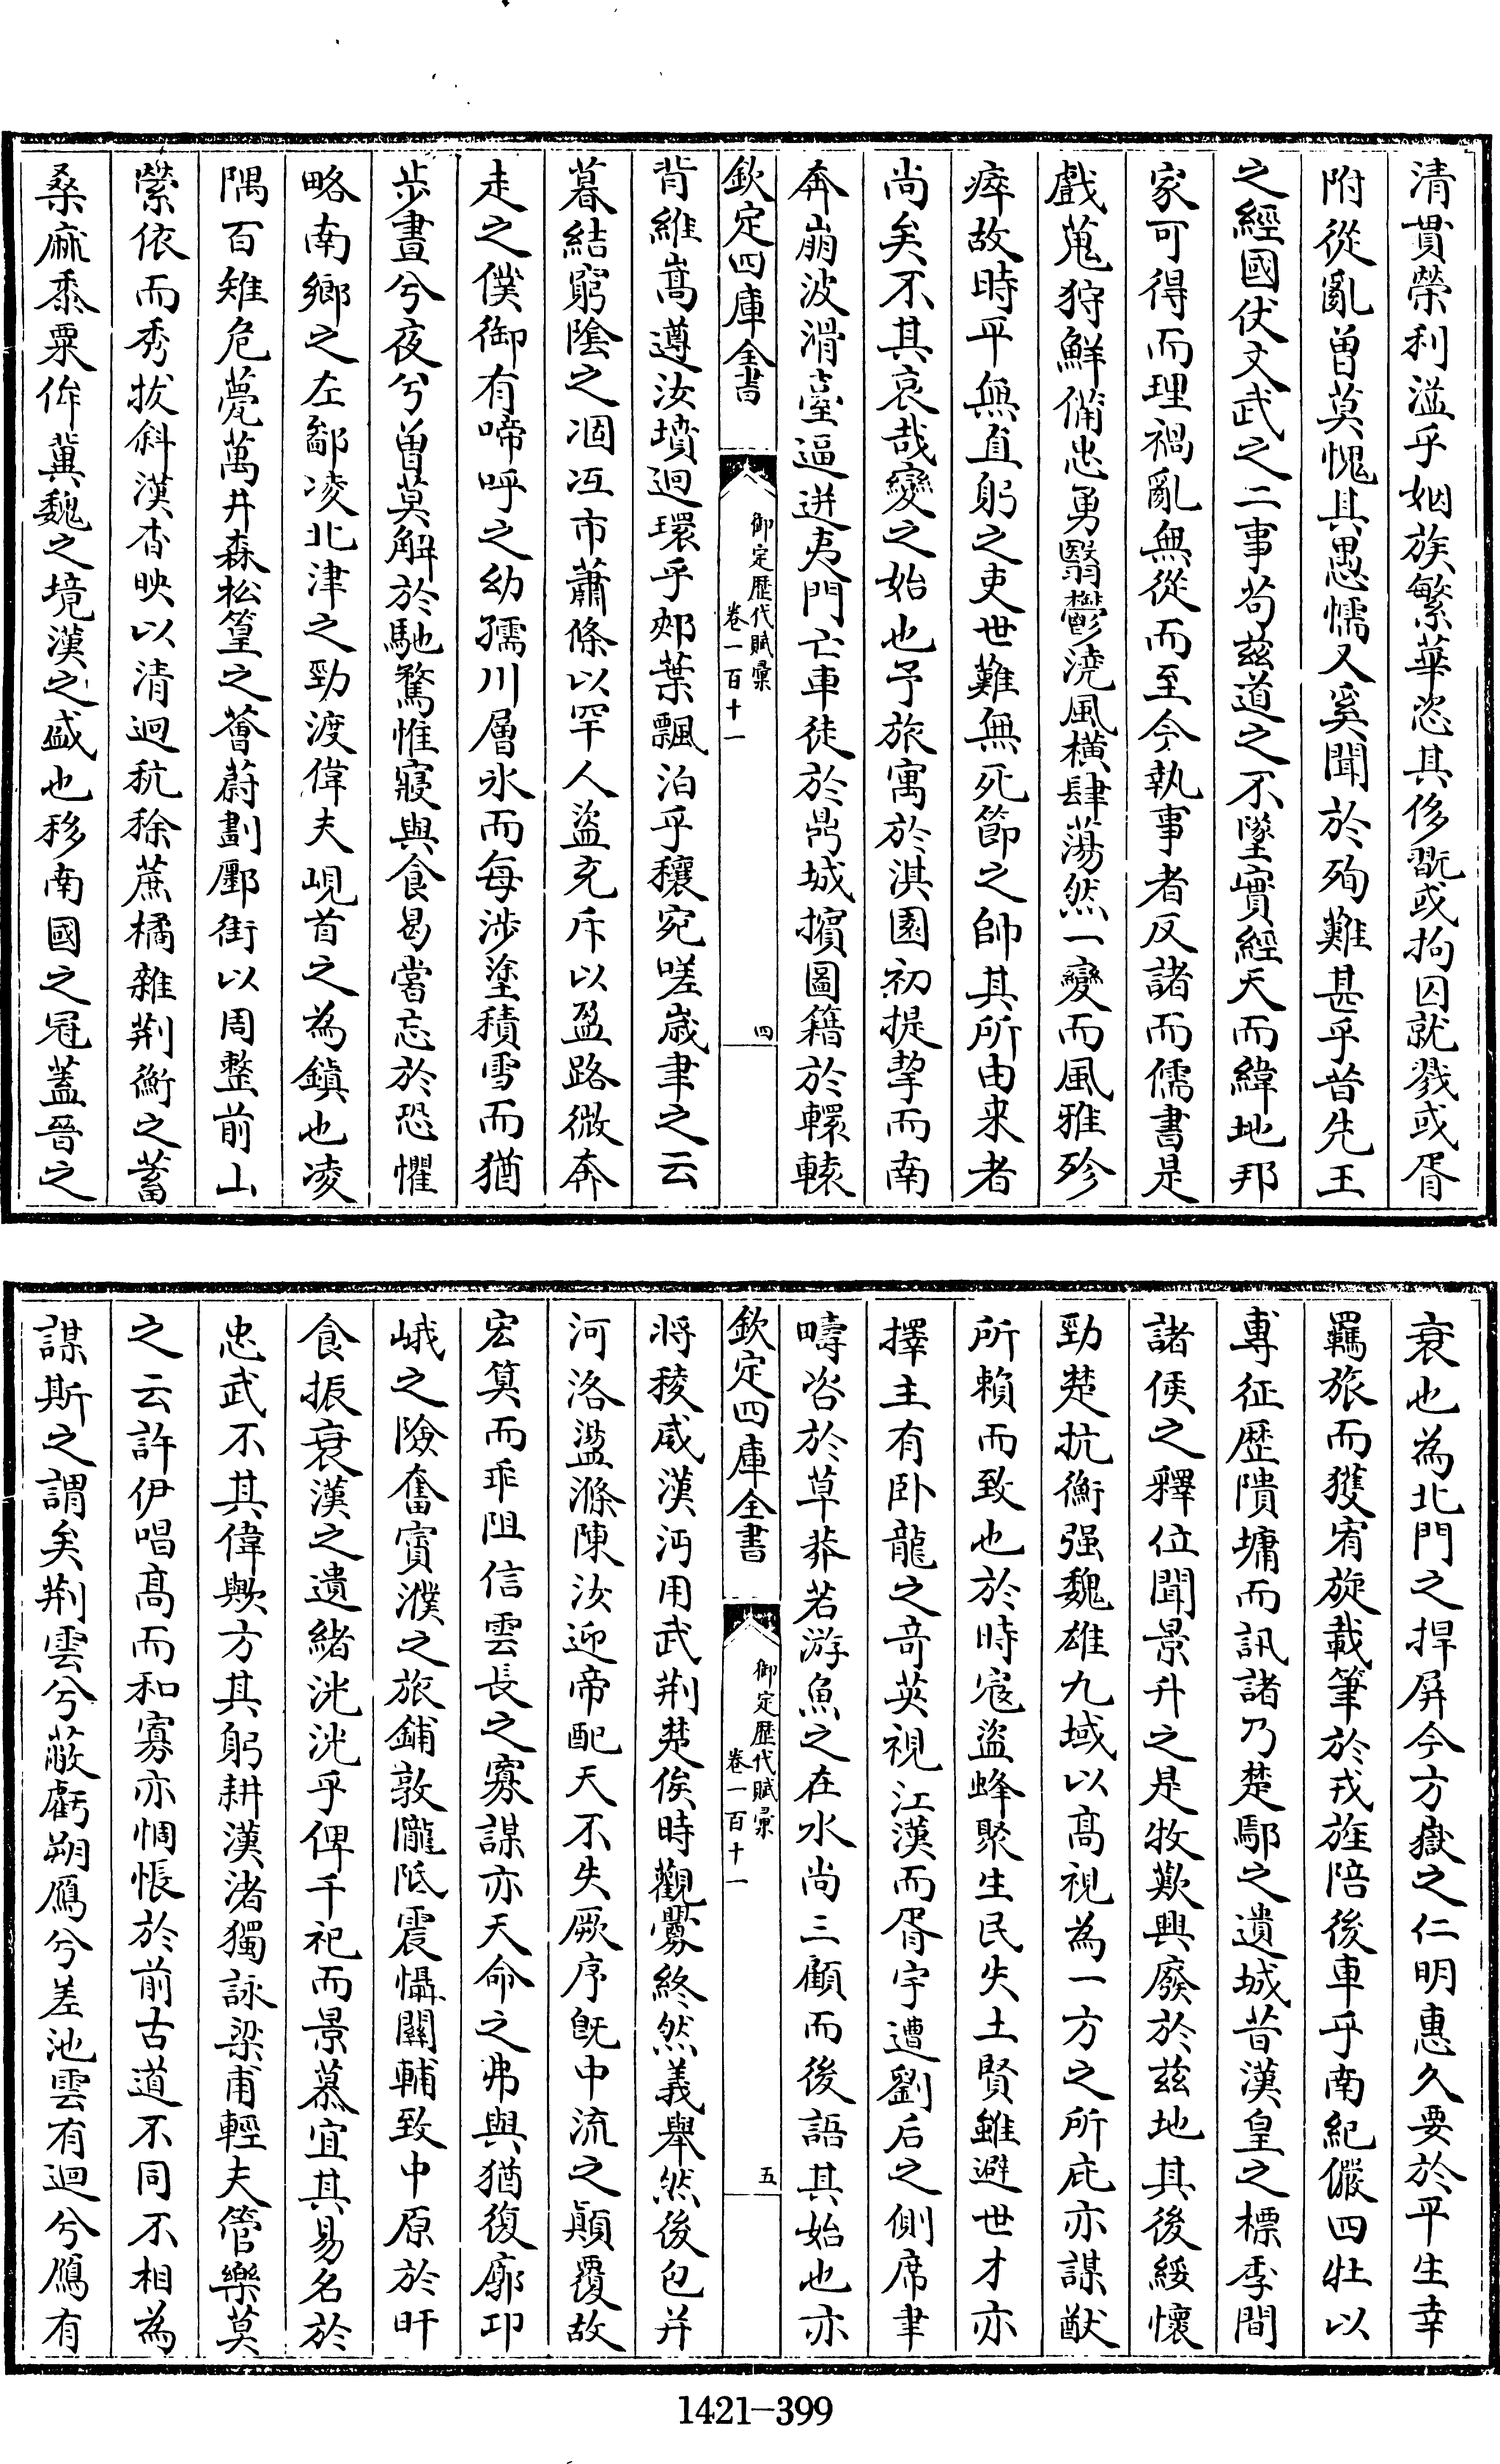 清貫榮利溢乎姻族繁華恣其侈翫或拘囚就戮或胥
附從亂曾莫愧其愚懦又奚聞於殉難甚乎昔先王
之經國仗文武之二事苟兹道之不墜實經天而緯地邦
家可得而理禍亂無從而至今執事者反諸而儒書是
戲蒐狩鮮備忠勇翳鬱澆風橫肆蕩然一變而風雅殄
瘁故時平無直躬之吏世難無死節之帥其所由来者
尚矣不其哀哉變之始也予旅寓於淇園初提挈而南
奔崩波滑臺逼迸夷門亡車徒於鬲城擯圖籍於轘轅
欽定四庫全書
御定歴代賦彙
卷一百十一
四
背維嵩遵汝墳迴環乎郟葉飄泊乎穰宛嗟歳聿之云
暮結窮陰之凅冱市蕭條以罕人盜充斥以盈路微奔
走之僕御有啼呼之幼孺川層氷而每渉塗積雪而猶
步晝兮夜兮曾莫解於馳騖惟寢與食曷嘗忘於恐懼
略南鄉之左鄙凌北津之勁渡偉夫峴首之為鎮也凌
隅百雉危甍萬井森松篁之薈蔚劃郾街以周整前山
縈依而秀拔斜漢杳映以清迴秔稌蔗橘雜荆衡之蓄
桑麻黍粟侔冀魏之境漢之盛也移南國之冠蓋晉之
衰也為北門之捍屏今方嶽之仁明惠久要於平生幸
羈旅而獲宥旋載筆於戎旌陪後車乎南紀儼四牡以
專征歴隤墉而訊諸乃楚鄢之遺城昔漢皇之標季間
諸侯之釋位聞景升之是牧歎興廢於兹地其後綏懷
勁楚抗衡强魏雄九域以髙視為一方之所庇亦謀猷
所賴而致也於時宼盜蜂聚生民失土賢雖避世才亦
擇主有卧龍之竒英視江漢而胥宇遭劉后之側席聿
疇咨於草莽若游魚之在水尚三顧而後語其始也亦
欽定四庫全書
御定歴代賦彙
卷一百十一
五
將稜威漢沔用武荆楚俟時觀釁終然義舉然後包并
河洛盪滌陳汝迎帝配天不失厥序旣中流之顛覆故
宏筭而乖阻信雲長之寡謀亦天命之弗與猶復廓卭
峨之險奮賨濮之旅鋪敦隴阺震懾關輔致中原於旰
食振衰漢之遺緒洸洸乎俾千祀而景慕宜其易名於
忠武不其偉歟方其躬耕漢渚獨詠梁甫輕夫管樂莫
之云許伊唱髙而和寡亦惆悵於前古道不同不相為
謀斯之謂矣荆雲兮蔽虧朔鴈兮差池雲有迴兮鴈有
1421-399